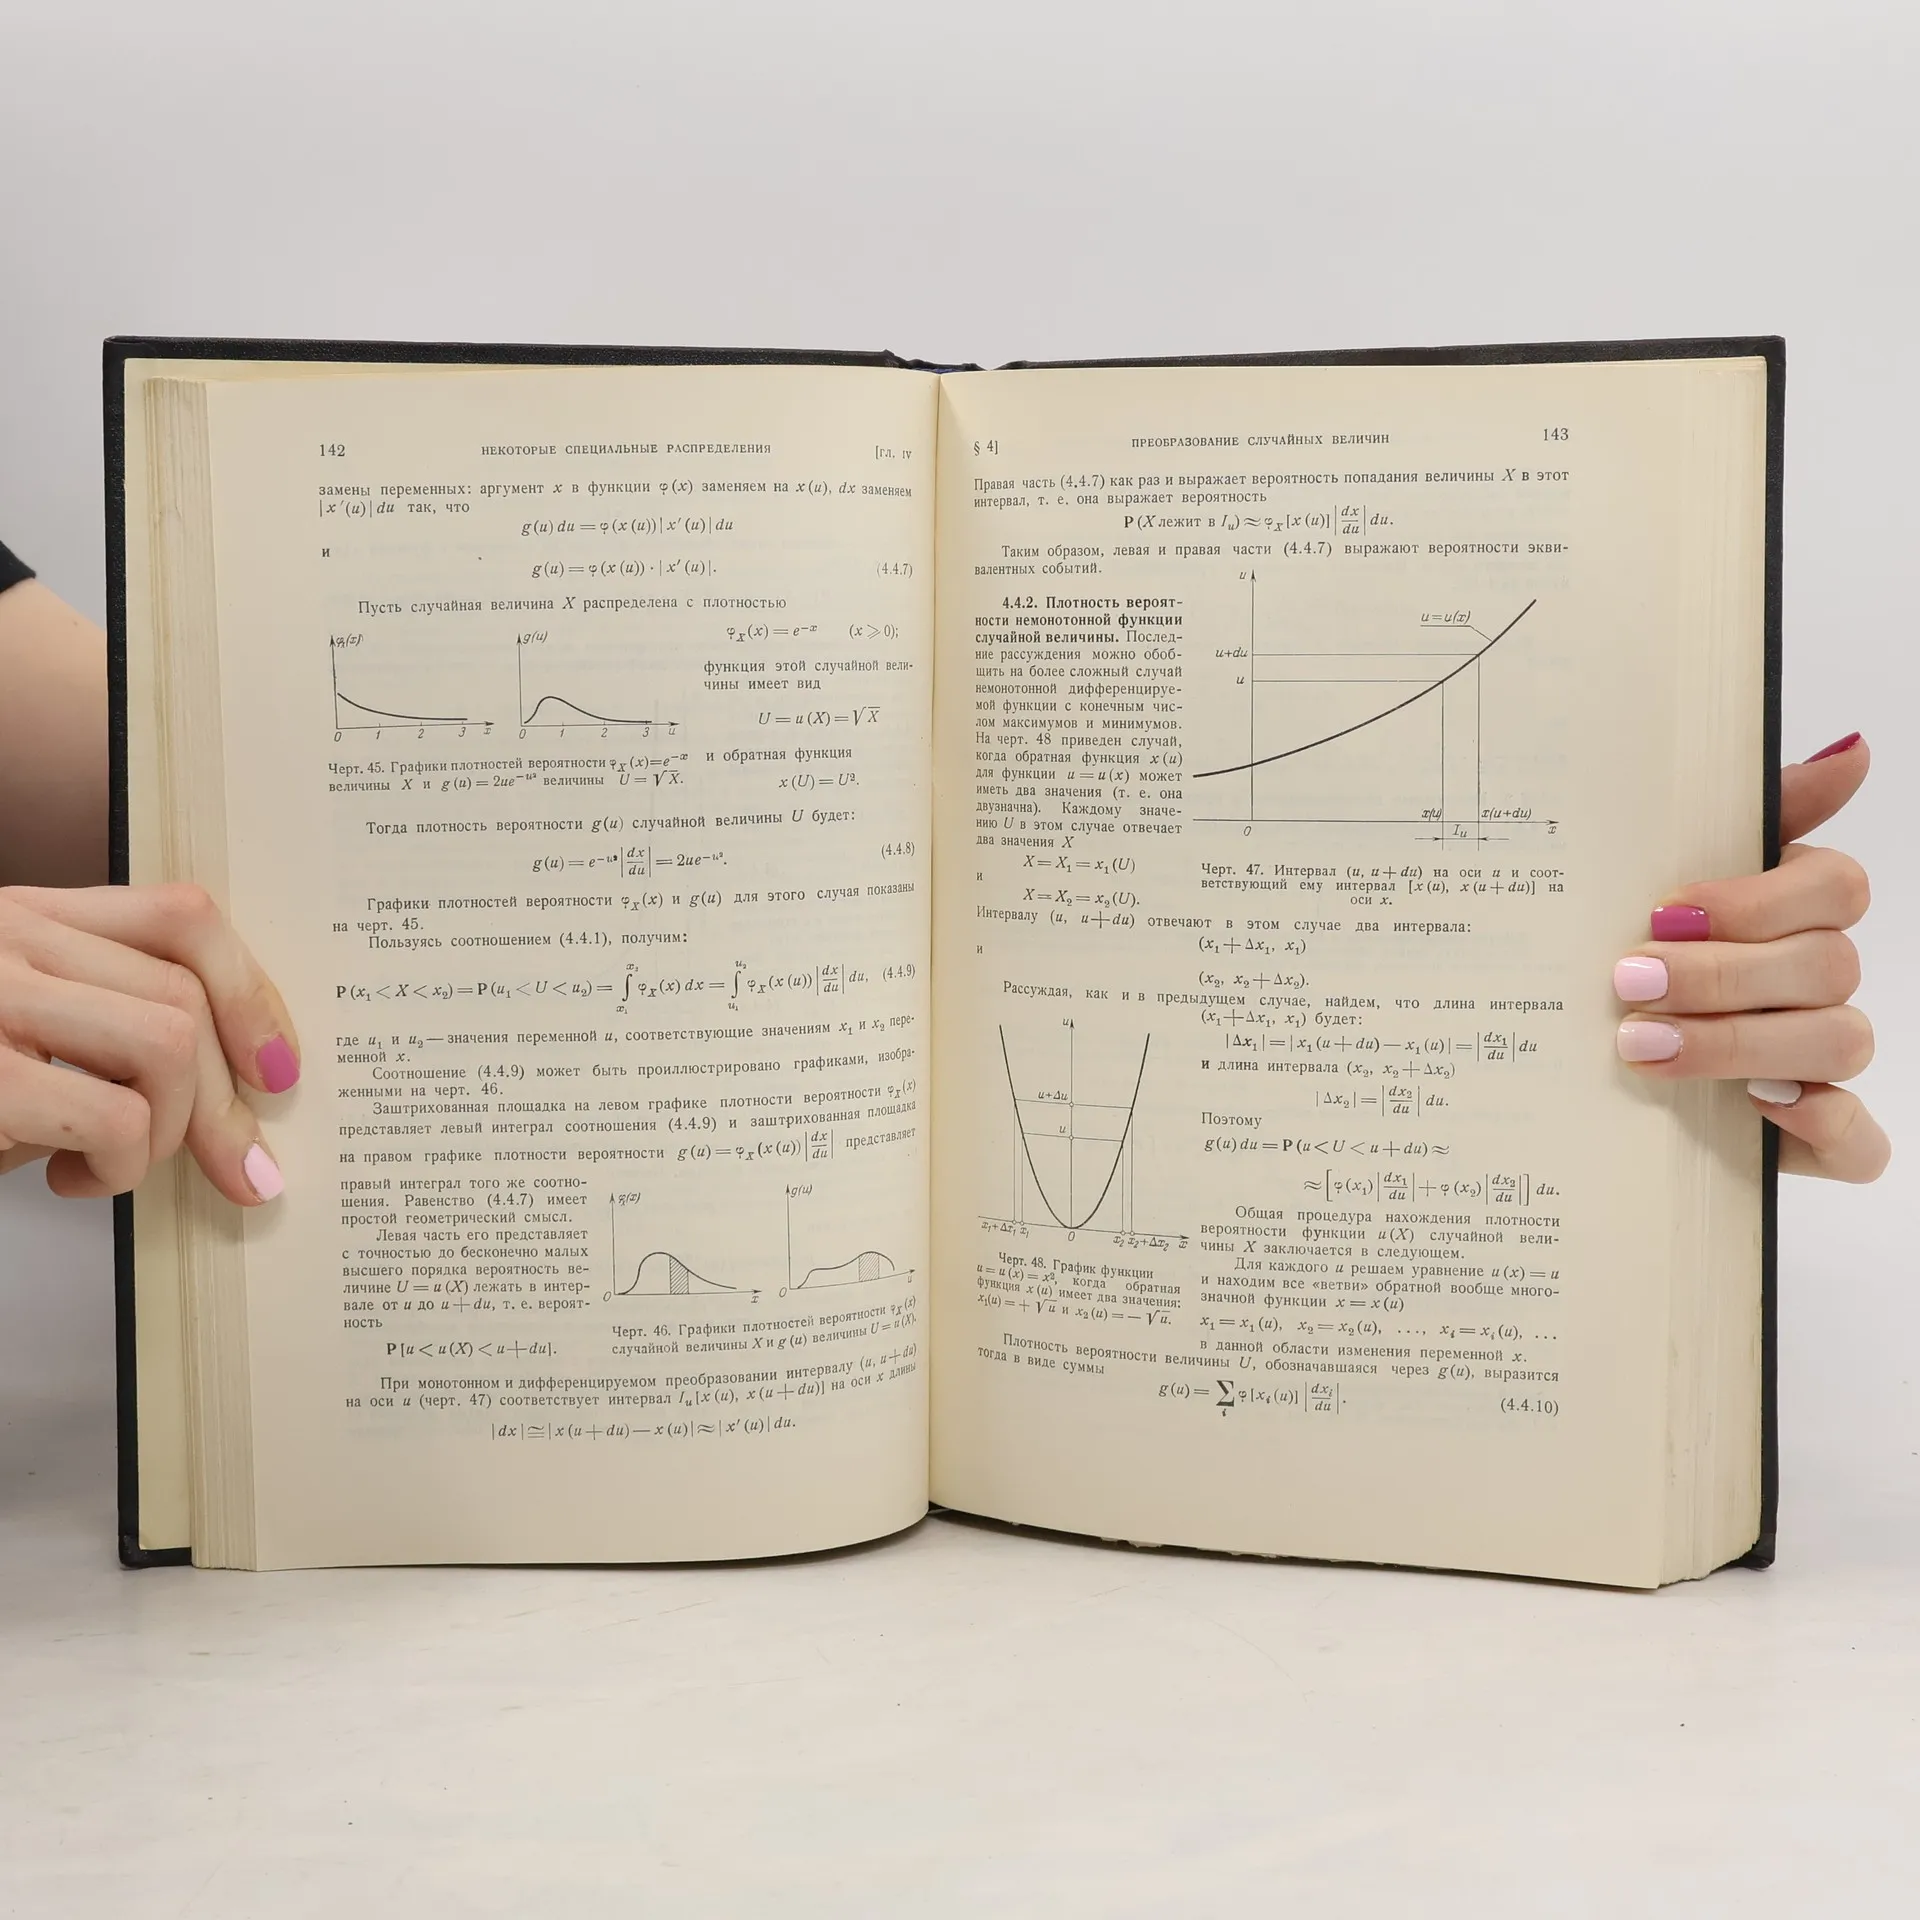 142 НЕКОТОРЫЕ СПЕЦИАЛЬНЫЕ РАСПРЕДЕЛЕНИЯ [ГЛ. IV
замены переменных: аргумент x в функции φ(x) заменяем на x(u), dx заменяем
|x′(u)| du так, что
g(u) du = φ(x(u)) |x′(u)| du
и
g(u) = φ(x(u)) · |x′(u)|. (4.4.7)
Пусть случайная величина X распределена с плотностью
φ_X(x) = e^{-x} (x ⩾ 0);
функция этой случайной вели-
чины имеет вид
U = u(X) = √X
и обратная функция
x(U) = U².
φ_X(x)
0 1 2 3 x
g(u)
0 1 2 3 u
Черт. 45. Графики плотностей вероятности φ_X(x)=e^{-x}
величины X и g(u) = 2ue^{-u²} величины U = √X.
Тогда плотность вероятности g(u) случайной величины U будет:
g(u) = e^{-u²} |dx/du| = 2ue^{-u²}. (4.4.8)
Графики плотностей вероятности φ_X(x) и g(u) для этого случая показаны
на черт. 45.
Пользуясь соотношением (4.4.1), получим:
P(x₁ < X < x₂) = P(u₁ < U < u₂) = ∫_{x₁}^{x₂} φ_X(x) dx = ∫_{u₁}^{u₂} φ_X(x(u)) |dx/du| du, (4.4.9)
где u₁ и u₂ — значения переменной u, соответствующие значениям x₁ и x₂ пере-
менной x.
Соотношение (4.4.9) может быть проиллюстрировано графиками, изобра-
женными на черт. 46.
Заштрихованная площадка на левом графике плотности вероятности φ_X(x)
представляет левый интеграл соотношения (4.4.9) и заштрихованная площадка
на правом графике плотности вероятности g(u) = φ_X(x(u)) |dx/du| представляет
правый интеграл того же соотно-
шения. Равенство (4.4.7) имеет
простой геометрический смысл.
Левая часть его представляет
с точностью до бесконечно малых
высшего порядка вероятность ве-
личине U = u(X) лежать в интер-
вале от u до u + du, т. е. вероят-
ность
P[u < u(X) < u + du].
φ_X(x)
0 x
g(u)
0 u
Черт. 46. Графики плотностей вероятности φ_X(x)
случайной величины X и g(u) величины U = u(X).
При монотонном и дифференцируемом преобразовании интервалу (u, u + du)
на оси u (черт. 47) соответствует интервал I_u [x(u), x(u + du)] на оси x длины
|dx| ≅ |x(u + du) — x(u)| ≈ |x′(u)| du.
§ 4] ПРЕОБРАЗОВАНИЕ СЛУЧАЙНЫХ ВЕЛИЧИН 143
Правая часть (4.4.7) как раз и выражает вероятность попадания величины X в этот
интервал, т. е. она выражает вероятность
P(X лежит в I_u) ≈ φ_X[x(u)] |dx/du| du.
Таким образом, левая и правая части (4.4.7) выражают вероятности экви-
валентных событий.
4.4.2. Плотность вероят-
ности немонотонной функции
случайной величины. Послед-
ние рассуждения можно обоб-
щить на более сложный случай
немонотонной дифференцируе-
мой функции с конечным чис-
лом максимумов и минимумов.
На черт. 48 приведен случай,
когда обратная функция x(u)
для функции u = u(x) может
иметь два значения (т. е. она
двузначна). Каждому значе-
нию U в этом случае отвечает
два значения X
X = X₁ = x₁(U)
и
X = X₂ = x₂(U).
u
u=u(x)
u+du
u
x(u) x(u+du)
0 I_u x
Черт. 47. Интервал (u, u + du) на оси u и соот-
ветствующий ему интервал [x(u), x(u + du)] на
оси x.
Интервалу (u, u + du) отвечают в этом случае два интервала:
(x₁ + Δx₁, x₁)
и
(x₂, x₂ + Δx₂).
Рассуждая, как и в предыдущем случае, найдем, что длина интервала
(x₁ + Δx₁, x₁) будет:
|Δx₁| = |x₁(u + du) — x₁(u)| = |dx₁/du| du
и длина интервала (x₂, x₂ + Δx₂)
|Δx₂| = |dx₂/du| du.
Поэтому
g(u) du = P(u < U < u + du) ≈
≈ [φ(x₁) |dx₁/du| + φ(x₂) |dx₂/du|] du.
u
u+Δu
u
x₁+Δx₁ x₁ 0 x₂ x₂+Δx₂ x
Черт. 48. График функции
u = u(x) = x², когда обратная
функция x(u) имеет два значения:
x₁(u) = + √u и x₂(u) = — √u.
Общая процедура нахождения плотности
вероятности функции u(X) случайной вели-
чины X заключается в следующем.
Для каждого u решаем уравнение u(x) = u
и находим все «ветви» обратной вообще много-
значной функции x = x(u)
x₁ = x₁(u), x₂ = x₂(u), ..., x_i = x_i(u), ...
в данной области изменения переменной x.
Плотность вероятности величины U, обозначавшаяся через g(u), выразится
тогда в виде суммы
g(u) = Σ_i φ[x_i(u)] |dx_i/du|. (4.4.10)